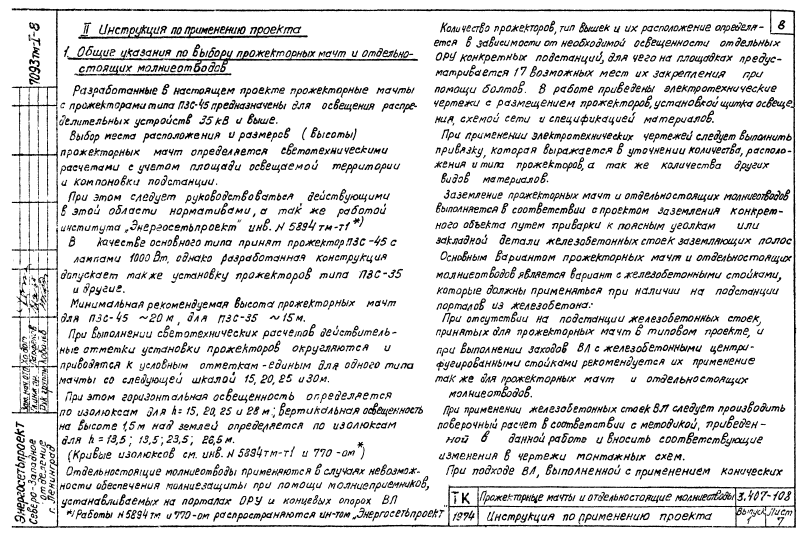 7093тм-I-8
8
II Инструкция по применению проекта
1. Общие указания по выбору прожекторных мачт и отдельно-
стоящих молниеотводов
Разработанные в настоящем проекте прожекторные мачты
с прожекторами типа ПЗС-45 предназначены для освещения распре-
делительных устройств 35 кВ и выше.
Выбор места расположения и размеров (высоты)
прожекторных мачт определяется светотехническими
расчетами с учетом площади освещаемой территории
и компоновки подстанции.
При этом следует руководствоваться действующими
в этой области нормативами, а так же работой
института „Энергосетьпроект" инв. N 5894тм-т1 *)
В качестве основного типа принят прожектор ПЗС-45 с
лампами 1000 Вт, однако разработанная конструкция
допускает также установку прожекторов типа ПЗС-35
и другие.
Минимальная рекомендуемая высота прожекторных мачт
для ПЗС-45 ~20м, для ПЗС-35 ~15м.
При выполнении светотехнических расчетов действитель-
ные отметки установки прожекторов округляются и
приводятся к условным отметкам - единым для одного типа
мачты со следующей шкалой 15, 20, 25 и 30м.
При этом горизонтальная освещенность определяется
по изолюксам для h = 15, 20, 25 и 28 м; вертикальная освещенность
на высоте 1,5м над землей определяется по изолюксам
для h = 13,5; 13,5; 23,5; 26,5 м.
(Кривые изолюксов см. инв. N 5894тм-т1 и 770-ом*)
Отдельностоящие молниеотводы применяются в случаях невозмож-
ности обеспечения молниезащиты при помощи молниеприемников,
устанавливаемых на порталах ОРУ и концевых опорах ВЛ
*) Работы N5894тм и 770-ом распространяются ин-том „Энергосетьпроект
Количество прожекторов, тип вышек и их расположение определя-
ется в зависимости от необходимой освещенности отдельных
ОРУ конкретных подстанций, для чего на площадках предус-
матривается 17 возможных мест их закрепления при
помощи болтов. В работе приведены электротехнические
чертежи с размещением прожекторов, установкой щитка освеще-
ния, схемой сети и спецификацией материалов.
При применении электротехнических чертежей следует выполнить
привязку, которая выражается в уточнении количества, располо-
жения и типа прожекторов, а так же количества других
видов материалов.
Заземление прожекторных мачт и отдельностоящих молниеотводов
выполняется в соответствии с проектом заземления конкрет-
ного объекта путем приварки к поясным уголкам или
закладной детали железобетонных стоек заземляющих полос
Основным вариантом прожекторных мачт и отдельностоящих
молниеотводов является вариант с железобетонными стойками,
которые должны применяться при наличии на подстанции
порталов из железобетона:
При отсутствии на подстанции железобетонных стоек,
принятых для прожекторных мачт в типовом проекте, и
при выполнении заходов ВЛ с железобетонными центри-
фугированными стойками рекомендуется их применение
так же для прожекторных мачт и отдельностоящих
молниеотводов.
При применении железобетонных стоек ВЛ следует производить
поверочный расчет в соответствии с методикой, приведен-
ной в данной работе и вносить соответствующие
изменения в чертежи монтажных схем.
При подходе ВЛ, выполненной с применением конических
Энергосетьпроект
Северо-Западное
отделение
г. Ленинград
ТК
1974
Прожекторные мачты и отдельностоящие молниеотводы
Инструкция по применению проекта
3.407-108
Выпуск 1
Лист 7